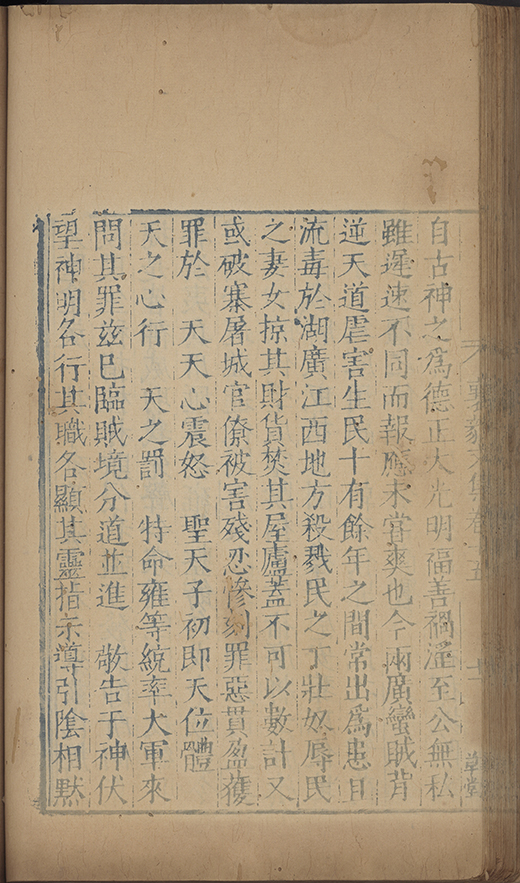 襄毅文集卷十五
草堂
自古神之爲德正大光明福善禍淫至公無私
雖遲速不同而報應未嘗爽也今兩廣蠻賊背
逆天道虐害生民十有餘年之間常出爲患日
流毒於湖廣江西地方殺戮民之丁壯奴辱民
之妻女掠其財貨焚其屋廬蓋不可以數計又
或破寨屠城官僚被害殘忍慘刻罪惡貫盈獲
罪於 天天心震怒 聖天子初即天位體
天之心行 天之罰 特命雍等統率大軍來
問其罪茲已臨賊境分道並進 敬告于神伏
望神明各行其職各顯其靈指示導引陰相默